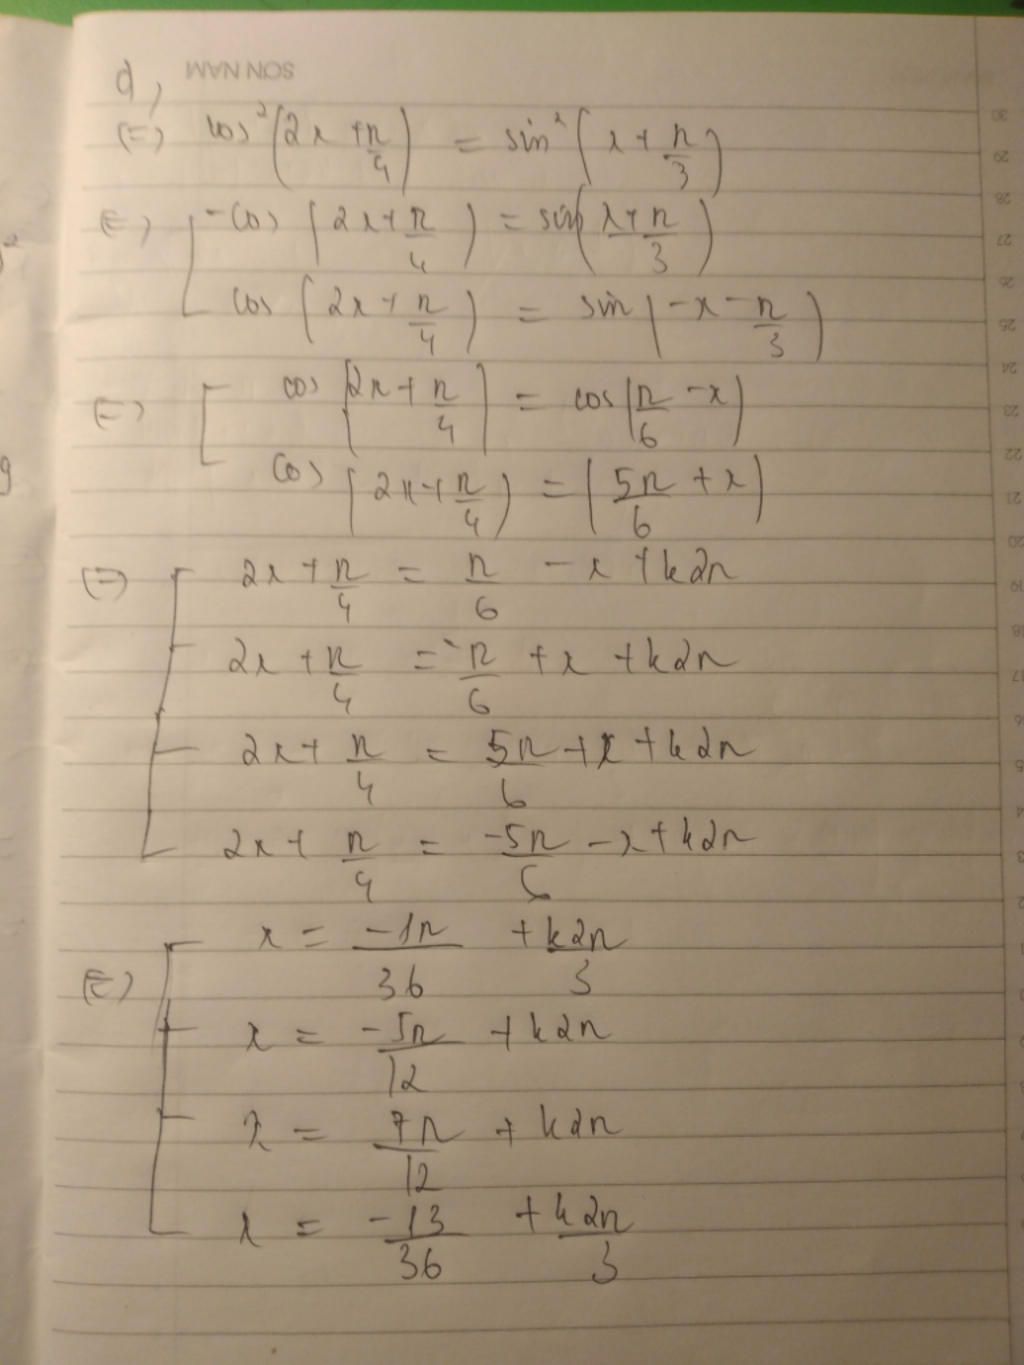 SON NAM
d,
(=) cos²(2x + π/4) = sin²(x + π/3)
(=) [ -cos(2x + π/4) = sin(x + π/3)
cos(2x + π/4) = sin(-x - π/3)
(=) [ cos(2x + π/4) = cos(π/6 - x)
cos(2x + π/4) = (5π/6 + x)
(=) [ 2x + π/4 = π/6 - x + k2π
2x + π/4 = -π/6 + x + k2π
2x + π/4 = 5π/6 + x + k2π
2x + π/4 = -5π/6 - x + k2π
(=) [ x = -1π/36 + k2π/3
x = -5π/12 + k2π
x = 7π/12 + k2π
x = -13/36 + k2π/3